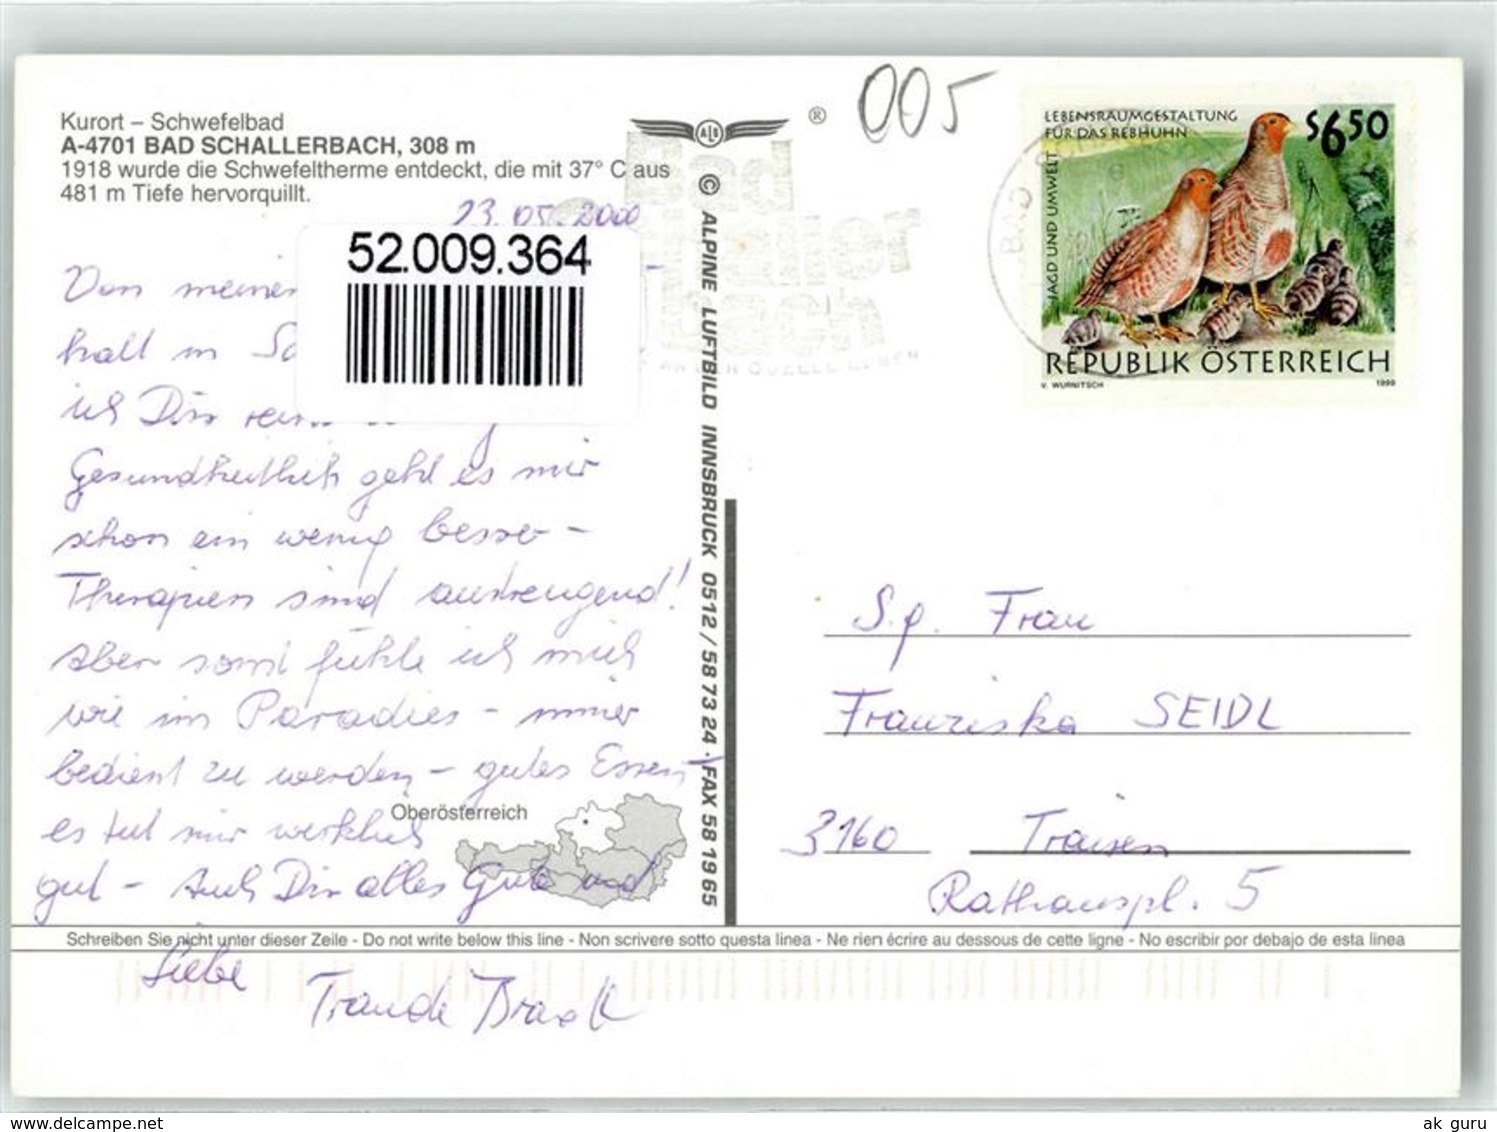 Kurort – Schwefelbad
A-4701 BAD SCHALLERBACH, 308 m
1918 wurde die Schwefeltherme entdeckt, die mit 37° C aus
481 m Tiefe hervorquillt.
23.05.2000
52.009.364
Von meinen
halt in
ich Dir
Gesundheitlich geht es mir
schon ein wenig besser –
Therapien sind anstrengend!
Aber sonst fühle ich mich
wie im Paradies – immer
bedient zu werden – gutes Essen
es tut mir wirklich
gut – Auch Dir alles Gute und
Liebe
Traude
Oberösterreich
ALB
®
© ALPINE LUFTBILD INNSBRUCK 0512 / 58 73 24 · FAX 58 19 65
005
bad
schaller
bach
BAD
LEBENSRAUMGESTALTUNG
FÜR DAS REBHUHN
JAGD UND UMWELT
S6.50
REPUBLIK ÖSTERREICH
V. WURNITSCH
1999
S.g. Frau
Franziska SEIDL
3160 Traisen
Rathauspl. 5
Schreiben Sie nicht unter dieser Zeile - Do not write below this line - Non scrivere sotto questa linea - Ne rien écrire au dessous de cette ligne - No escribir por debajo de esta linea
akpool.de
ak guru